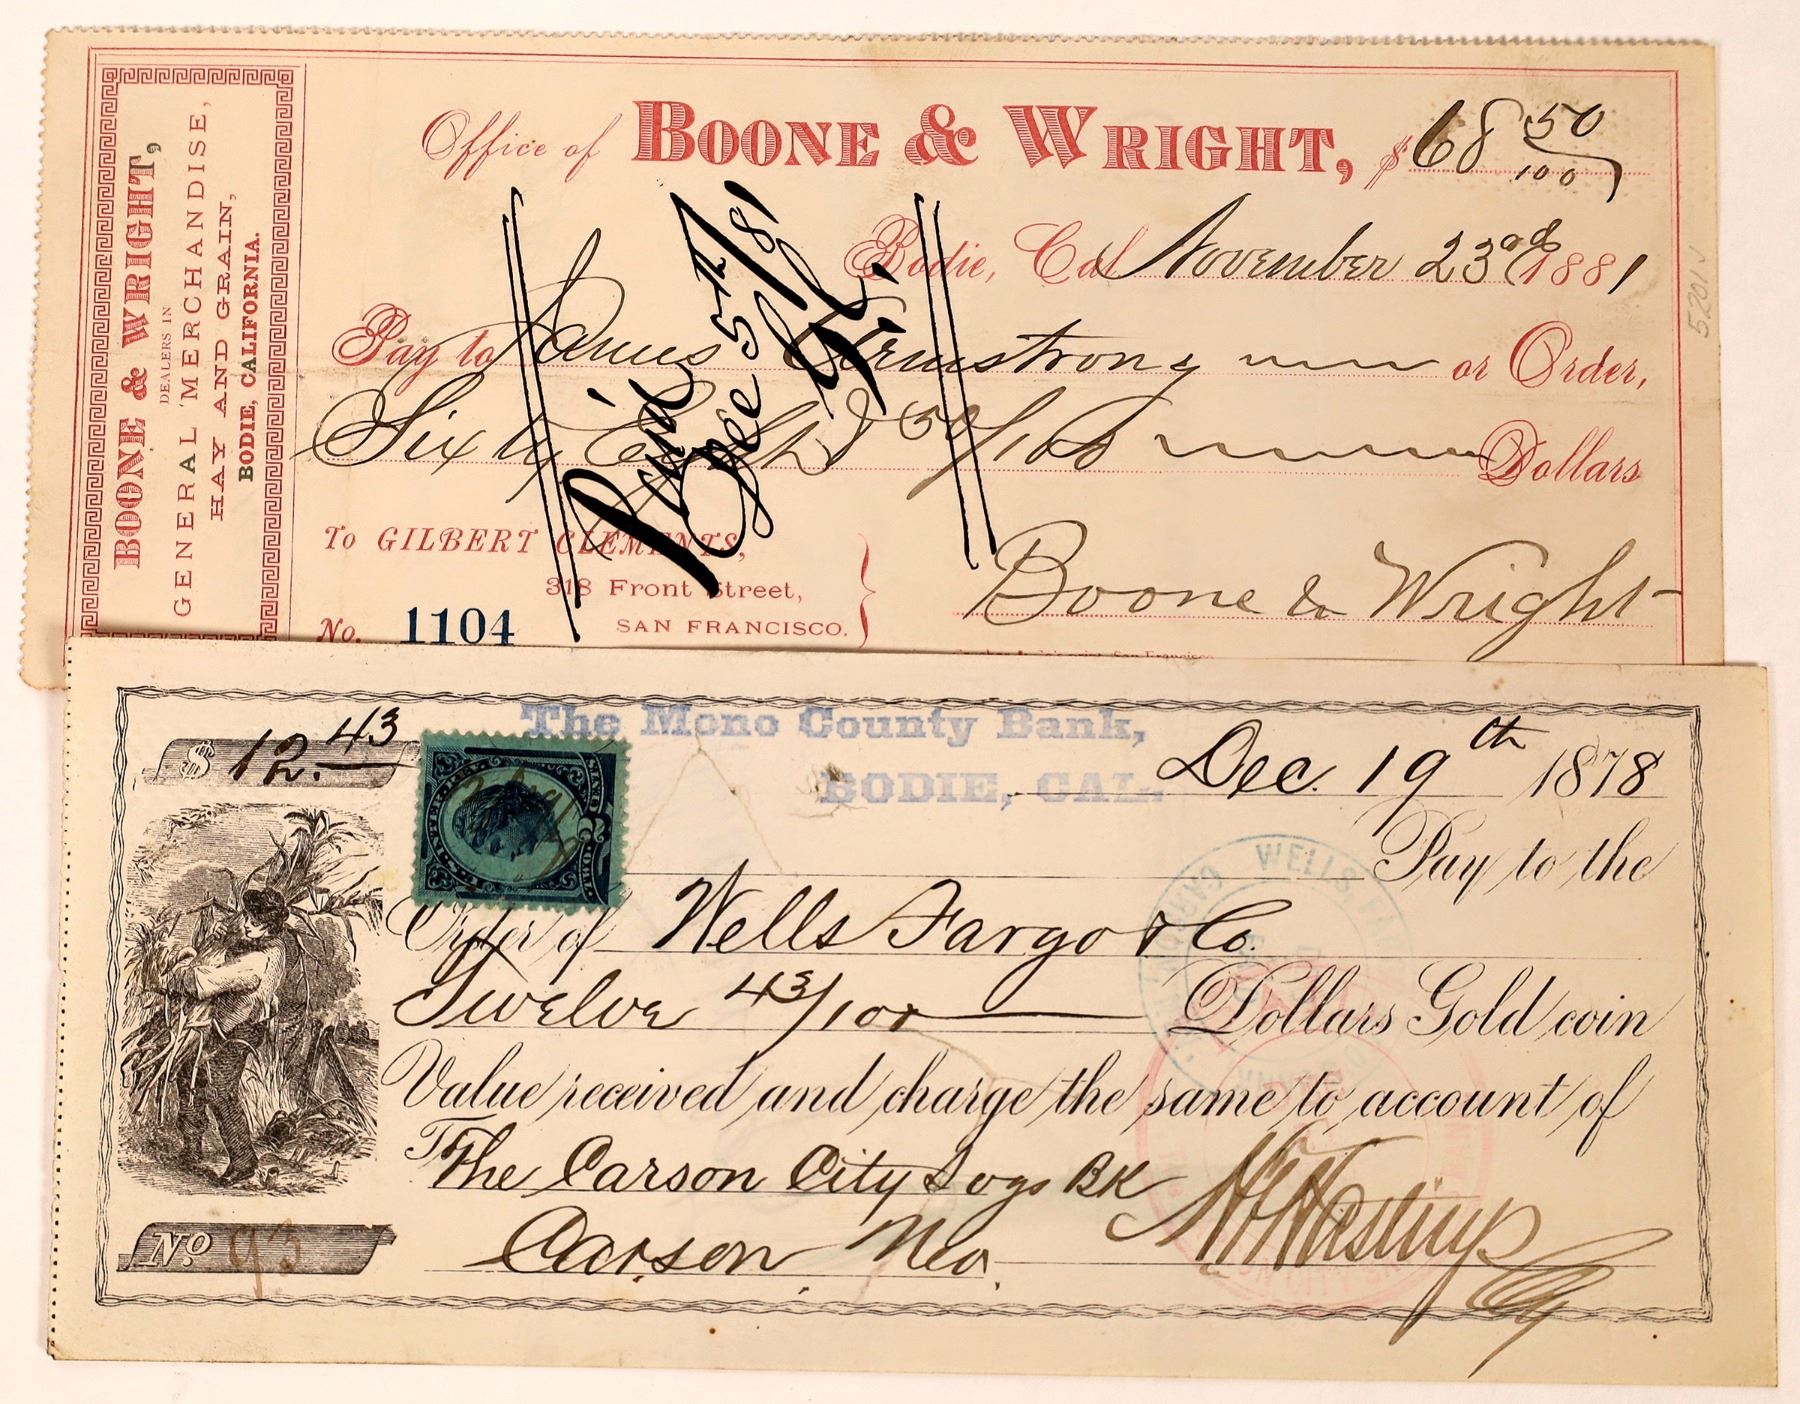 BOONE & WRIGHT,
DEALERS IN
GENERAL MERCHANDISE,
HAY AND GRAIN,
BODIE, CALIFORNIA.
Office of BOONE & WRIGHT, $68 50/100
Bodie, Cal November 23rd 1881
Pay to James Armstrong or Order,
Sixty Eight & 50/100 Dollars
Paid
Dec 5th/81
To GILBERT CLEMENTS,
318 Front Street,
SAN FRANCISCO.
No. 1104
Boone & Wright
5201
The Mono County Bank,
BODIE, CAL.
$ 12.43
Dec. 19th 1878
Pay to the
Order of Wells Fargo & Co.
Twelve 43/100 Dollars Gold coin
Value received and charge the same to account of
To The Carson City Svgs Bk
Carson Nev.
No. 93
WELLS, FA
INTER. REV.